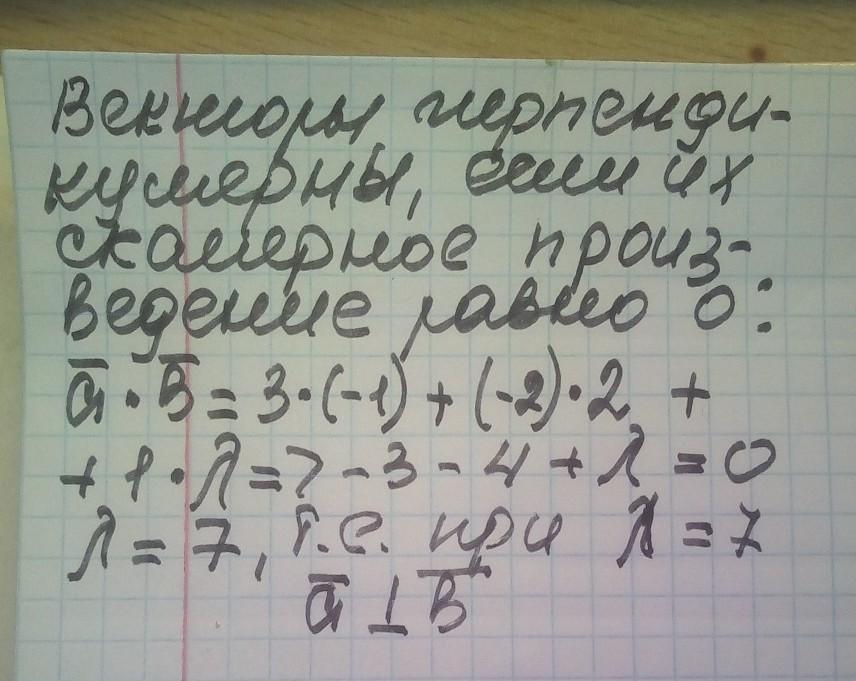 Векторы перпенди-
кулярны, если их
скалярное произ-
ведение равно 0:
a̅ · b̅ = 3·(-1) + (-2)·2 +
+ 1·λ => -3 - 4 + λ = 0
λ = 7, т.е. при λ = 7
a̅ ⊥ b̅